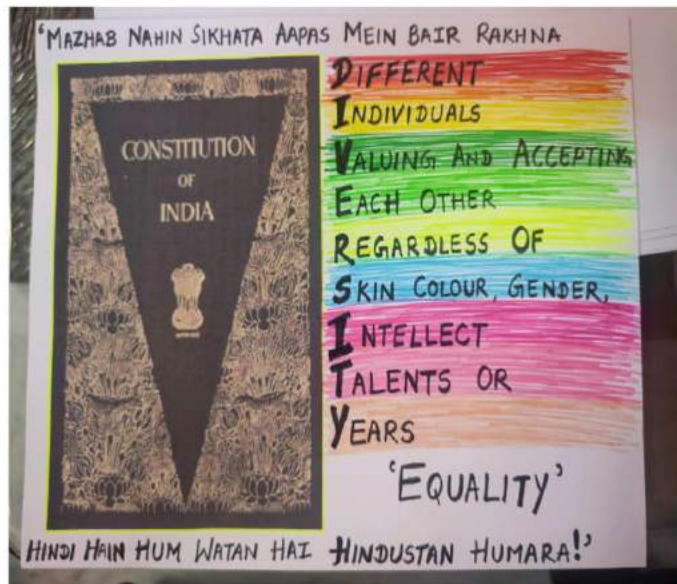 'MAZHAB NAHIN SIKHATA AAPAS MEIN BAIR RAKHNA
CONSTITUTION
OF
INDIA
DIFFERENT
INDIVIDUALS
VALUING AND ACCEPTING
EACH OTHER
REGARDLESS OF
SKIN COLOUR, GENDER,
INTELLECT
TALENTS OR
YEARS
'EQUALITY'
HINDI HAIN HUM WATAN HAI HINDUSTAN HUMARA!'